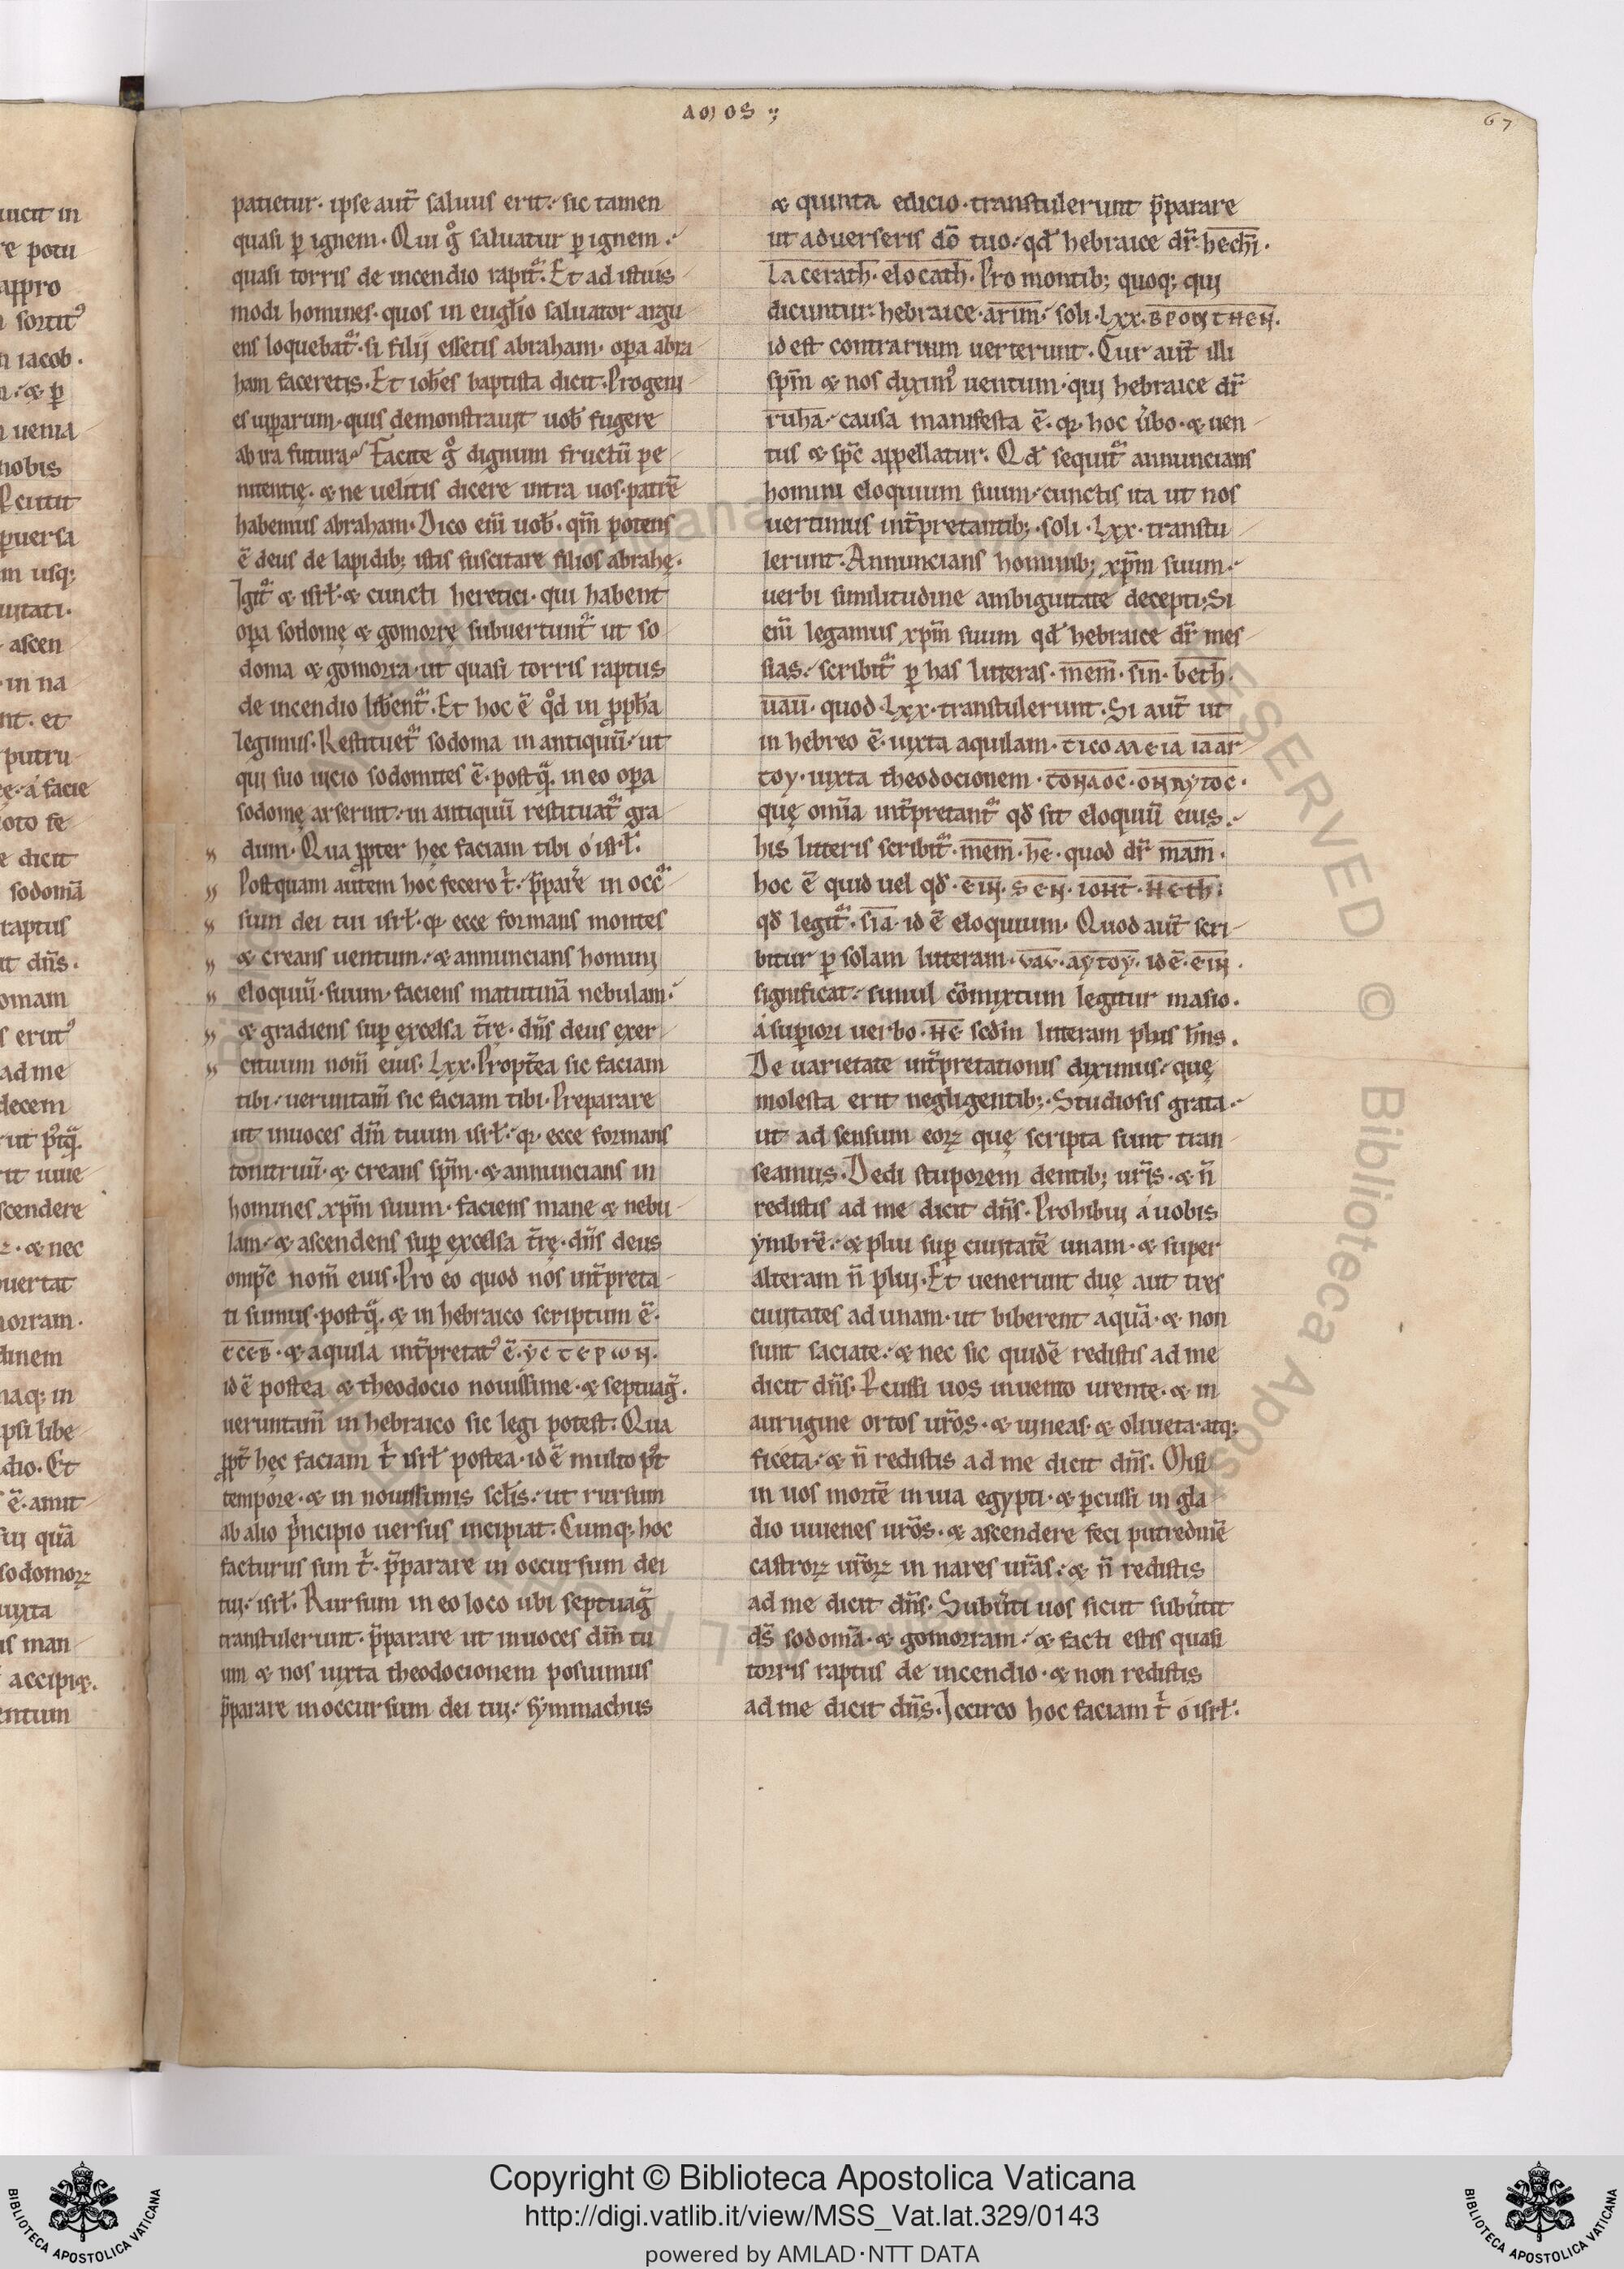 AMOS
67
patietur. ipse aut̃ saluus erit. sic tamen
quasi ꝑ ignem. Qui gͦ saluatur ꝑ ignem.
quasi torris de incendio rapit᷑. Et ad istius
modi homines. quos in eugl̃io saluator argu
ens loquebat᷑. si filij essetis abraham. oꝑa abra
ham faceretis. Et ioh̃es baptista dicit. Progeni
es uiꝑarum. quis demonstrauit uob̃ fugere
ab ira futura. Facite gͦ dignum fructũ pe
nitentię. & ne uelitis dicere intra uos. patrẽ
habemus abraham. Dico eni᷑ uob̃. qm̃ potens
ẽ deus de lapidib; istis suscitare filios abrahę.
Igit᷑ & isrł. & cuncti heretici. qui habent
oꝑa sodomę & gomorrę subuertunt᷑ ut so
doma & gomorra. ut quasi torris raptus
de incendio lib̃ent᷑. Et hoc ẽ qͦd in ꝓph̃a
legimus. Restituet᷑ sodoma in antiquũ. ut
qui suo uicio sodomites ẽ. postq̃. in eo oꝑa
sodomę arserint. in antiquũ restituat᷑ gra
dum. Qua ꝓpter hęc faciam tibi o isrł.
Postquam autem hoc fecero t̉. p̃pare in occ᷑
sum dei tui isrł. qꝛ ecce formans montes
& creans uentum. & annuncians homini
eloquiũ. suum. faciens matutinã nebulam.
& gradiens suꝑ excelsa t̃rę. dñs deus exer
cituum nom̃ eius. Lxx. Propt̃ea sic faciam
tibi. ueruntam̃ sic faciam tibi. Preparare
ut inuoces dm̃ tuum isrł. qꝛ ecce formans
tonitruũ. & creans sp̃m. & annuncians in
homines xp̃m suum. faciens mane & nebu
lam. & ascendens suꝑ excelsa t̃rę. dñs deus
omp̃c nom̃ eius. Pro eo quod nos int̃preta
ti sumus. postq̃. & in hebraico scriptum ẽ.
eceb. & aquila int̃pretatꝰ ẽ. ycterωn.
id ẽ postea & theodocio nouissime. & septuag̃.
ueruntam̃ in hebraico sic legi potest. Qua
ꝓpt̃ hęc faciam t̉ isrł postea. id ẽ multo pͦt
tempore. & in nouissimis scl̃is. ut rursum
ab alio p̉ncipio uersus incipiat. Cumq; hoc
facturus sim t̉. p̃parare in occursum dei
tui. isrł. Rursum in eo loco ubi septuag̃
transtulerunt. p̃parare ut inuoces dm̃ tu
um & nos iuxta theodocionem posuimus
p̃parare in occursum dei tui. symmachus
& quinta edicio. transtulerunt p̃parare
ut aduerseris dõ tuo. qd̃ hebraice dr̃. hechi.
lacerath. elocath. Pro montib; quoq; qui
dicuntur hebraice. arim. soli. Lxx.
id est contrarium uerterunt. Cur aut̃ illi
sp̃m & nos diximꝰ uentum. qui hebraice dr̃
ruha. causa manifesta ẽ. qꝛ hoc u̓bo. & uen
tus & sp̃c appellatur. Qd̃ sequit᷑ annuncians
homini eloquium suum. cunctis ita ut nos
uertimus int̃pretantib;. soli. Lxx. transtu
lerunt. Annuncians hominib; xp̃m suum.
uerbi similitudine ambiguitate decepti. Si
eni᷑ legamus xp̃m suum qd̃ hebraice dr̃ mes
sias. scribit᷑ ꝑ has litteras. mem. sin. beth.
uau. quod. Lxx. transtulerunt. Si aut̃ ut
in hebreo ẽ. iuxta aquilam.
toy. iuxta theodocionem.
quę omĩa int̃pretant᷑ qd̃ sit eloquiũ eius.
his litteris scribit᷑. mem. he. quod dr̃ mam.
hoc ẽ quid uel qd̃.
qd̃ legit᷑. sia. id ẽ eloquium. Quod aut̃ scri
bitur ꝑ solam litteram. vav. aytoy. id ẽ. ein.
significat. simul cõmixtum legitur masio.
a suꝑiori uerbo. he sed in litteram plus h̃ns.
De uarietate int̃pretationis diximus. quę
molesta erit negligentib;. Studiosis grata.
ut ad sensum eoꝝ quę scripta sunt tran
seamus. Dedi stuporem dentib; ur̃is. & ñ
redistis ad me dicit dñs. Prohibui a uobis
ymbrẽ. & plui suꝑ ciuitatẽ unam. & super
alteram ñ plui. Et uenerunt duę aut tres
ciuitates ad unam. ut biberent aquã. & non
sunt saciate. & nec sic quidẽ redistis ad me
dicit dñs. Ꝑcussi uos in uento urente. & in
aurugine ortos ur̃os. & uineas. & oliueta. atq;
ficeta. & ñ redistis ad me dicit dñs. Misi
in uos mortẽ in uia egypti. & ꝑcussi in gla
dio iuuenes ur̃os. & ascendere feci putredinẽ
castroꝝ ur̃oꝝ in nares ur̃as. & ñ redistis
ad me dicit dñs. Subu̓ti uos sicut subu̓tit
ds̃ sodomã. & gomorram. & facti estis quasi
torris raptus de incendio. & non redistis
ad me dicit dñs. Iccirco hoc faciam t̉ o isrł.
Copyright © Biblioteca Apostolica Vaticana
http://digi.vatlib.it/view/MSS_Vat.lat.329/0143
powered by AMLAD·NTT DATA
BIBLIOTECA APOSTOLICA VATICANA
BIBLIOTECA APOSTOLICA VATICANA